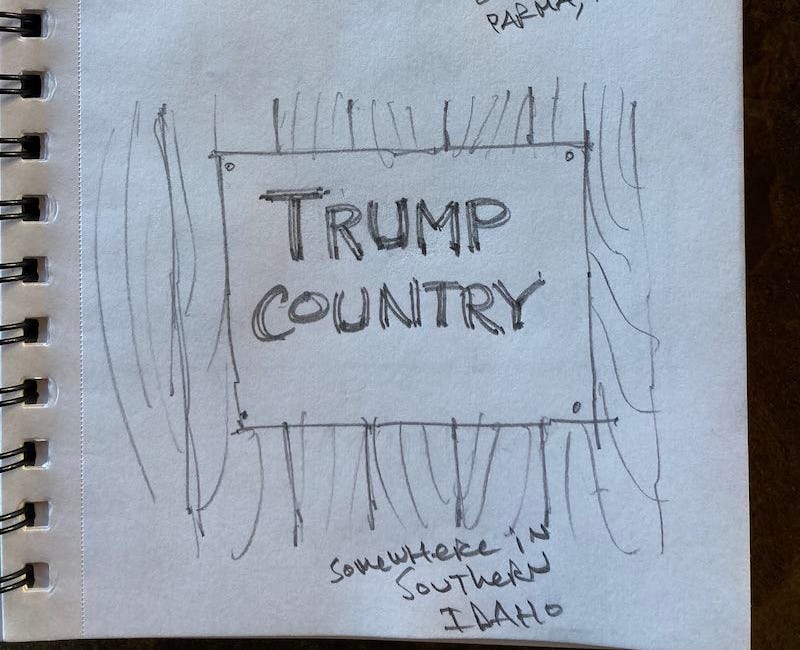 PARMA,
TRUMP
COUNTRY
SOMEWHERE IN
SOUTHERN
IDAHO